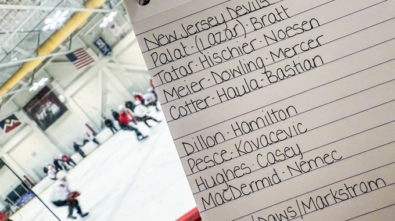 New Jersey Devils
Palat-(Lazar)-Bratt
Tatar-Hischier-Noesen
Meier-Dowling-Mercer
Cotter-Haula-Bastian
Dillon-Hamilton
Pesce-Kovacevic
Hughes-Casey
MacDermid-Nemec
Daws/Markstrom